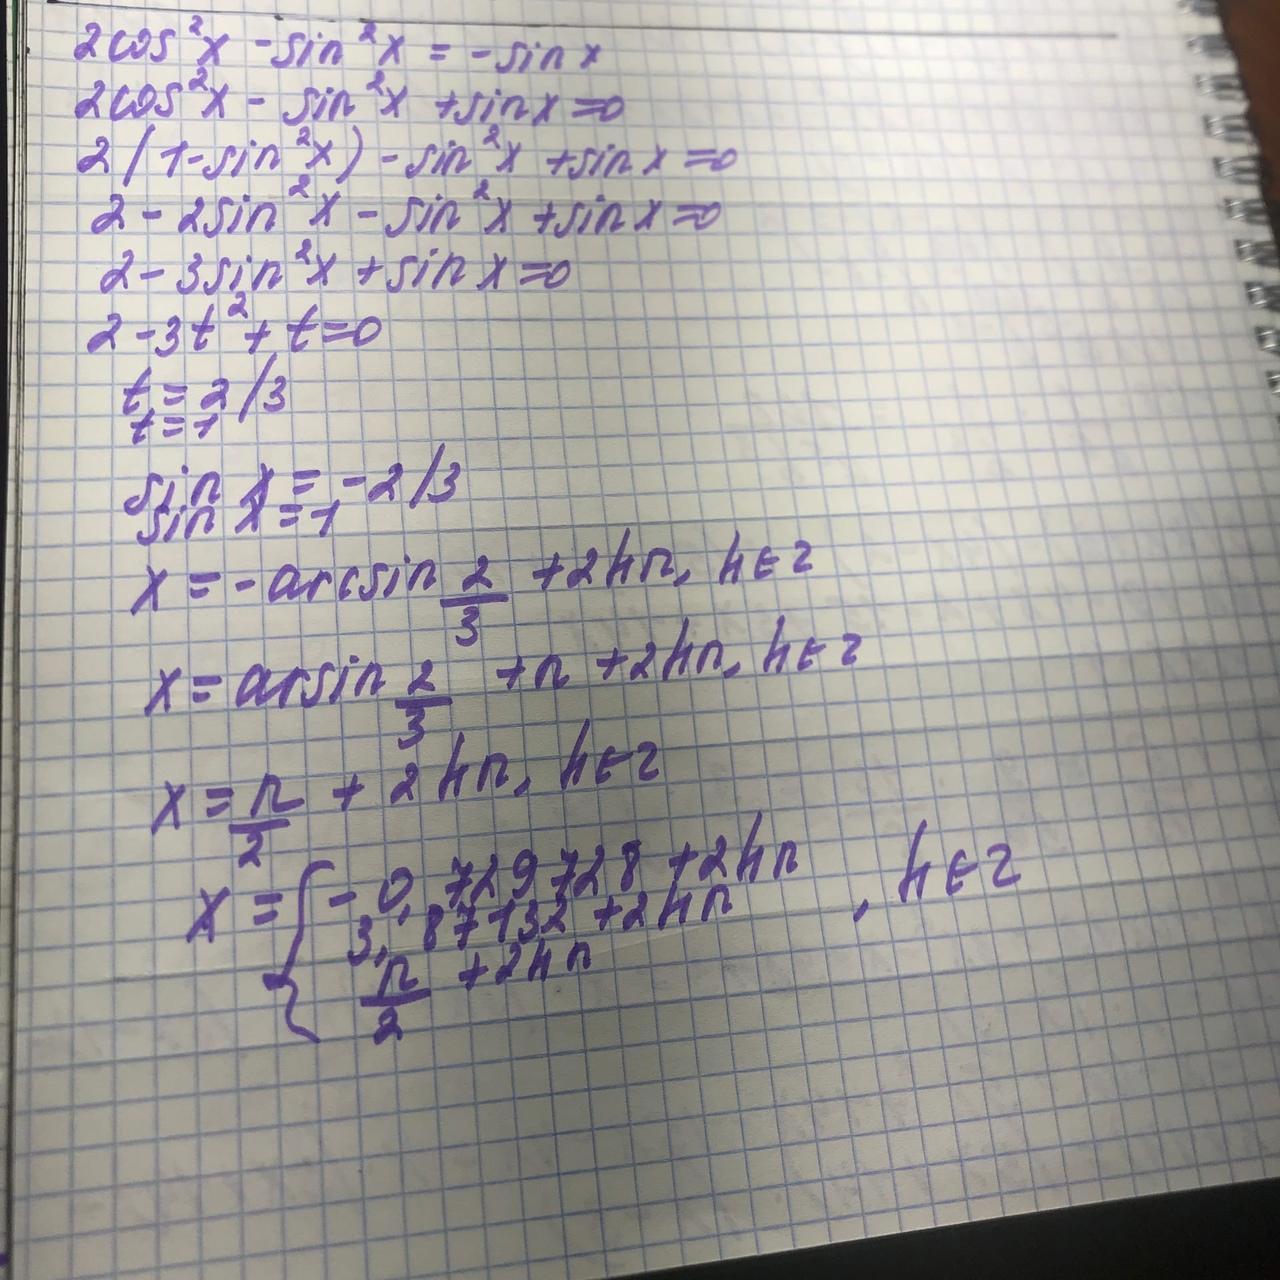 2cos²x - sin²x = -sin x
2cos²x - sin²x + sin x = 0
2(1 - sin²x) - sin²x + sin x = 0
2 - 2sin²x - sin²x + sin x = 0
2 - 3sin²x + sin x = 0
2 - 3t² + t = 0
t = 2/3
t = 1
sin x = -2/3
sin x = 1
x = -arcsin 2/3 + 2kπ, k∈Z
x = arsin 2/3 + π + 2kπ, k∈Z
x = π/2 + 2kπ, k∈Z
x = { -0,729728 + 2kπ
3,87132 + 2kπ , k∈Z
π/2 + 2kπ